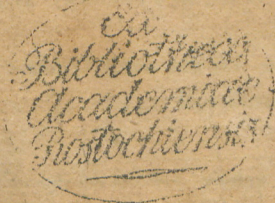 Ex
Bibliotheca
Academiae
Rostochiensi.